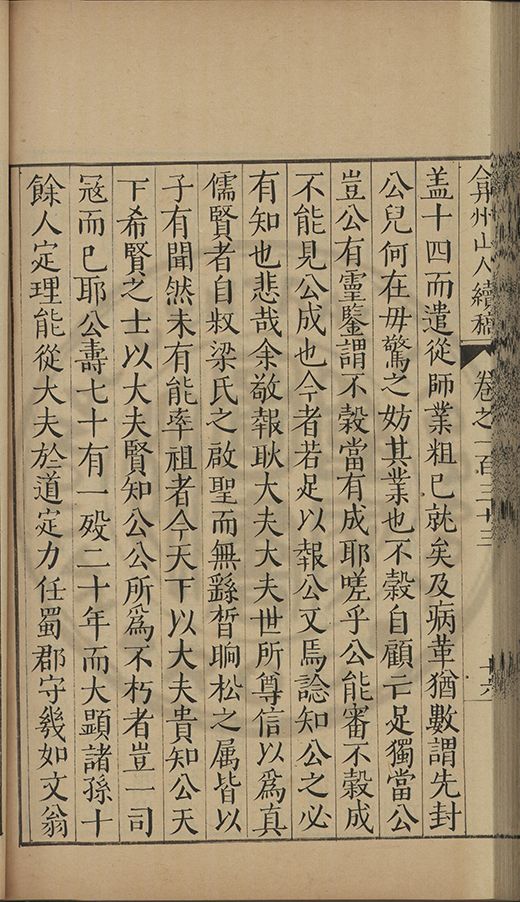 弇州山人續稿 卷之一百三十三 十六
蓋十四而遣從師業粗已就矣及病革猶數謂先封
公兒何在毋驚之妨其業也不穀自顧亡足獨當公
豈公有靈鑒謂不穀當有成耶嗟乎公能審不穀成
不能見公成也今者若足以報公又焉諗知公之必
有知也悲哉余敬報耿大夫大夫世所尊信以爲真
儒賢者自叔梁氏之啟聖而無繇晳晌松之属皆以
子有聞然未有能率祖者今天下以大夫貴知公天
下希賢之士以大夫賢知公公所爲不朽者豈一司
寇而已耶公壽七十有一歿二十年而大顯諸孫十
餘人定理能從大夫於道定力任蜀郡守幾如文翁